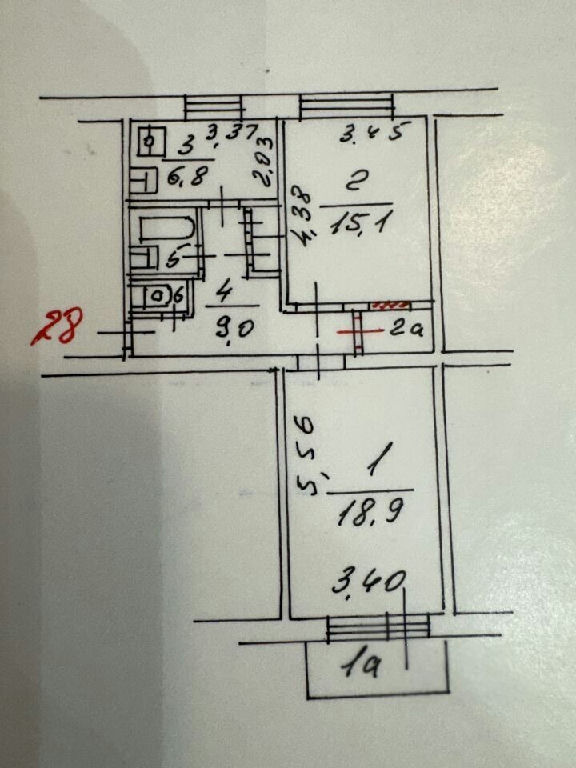 3
3.37
6,8
2.03
3.45
2
15,1
4.38
5
6
4
9.0
28
2а
5,56
1
18,9
3.40
1а